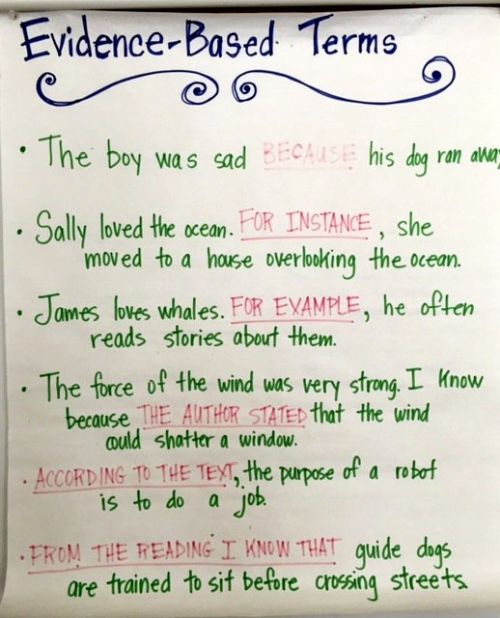 Evidence-Based Terms
• The boy was sad BECAUSE his dog ran away
• Sally loved the ocean. FOR INSTANCE, she
moved to a house overlooking the ocean.
• James loves whales. FOR EXAMPLE, he often
reads stories about them.
• The force of the wind was very strong. I know
because THE AUTHOR STATED that the wind
could shatter a window.
• ACCORDING TO THE TEXT, the purpose of a robot
is to do a job.
• FROM THE READING I KNOW THAT guide dogs
are trained to sit before crossing streets